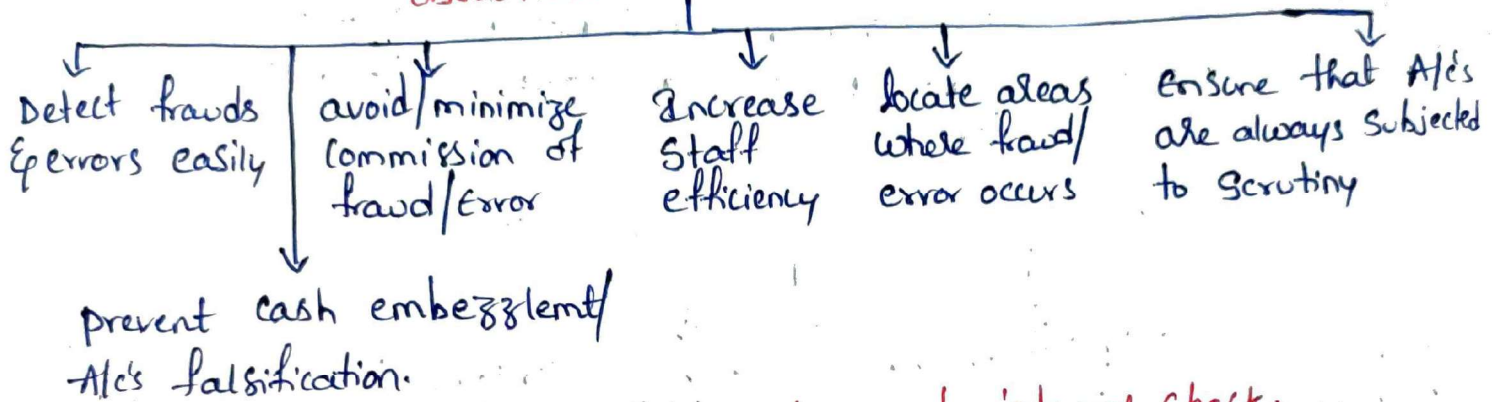 Detect frauds
& errors easily
avoid/minimize
commission of
fraud/Error
Increase
Staff
efficiency
locate areas
where fraud/
error occurs
Ensure that A/c's
are always Subjected
to Scrutiny
prevent cash embezzlemt/
A/c's falsification.
check.